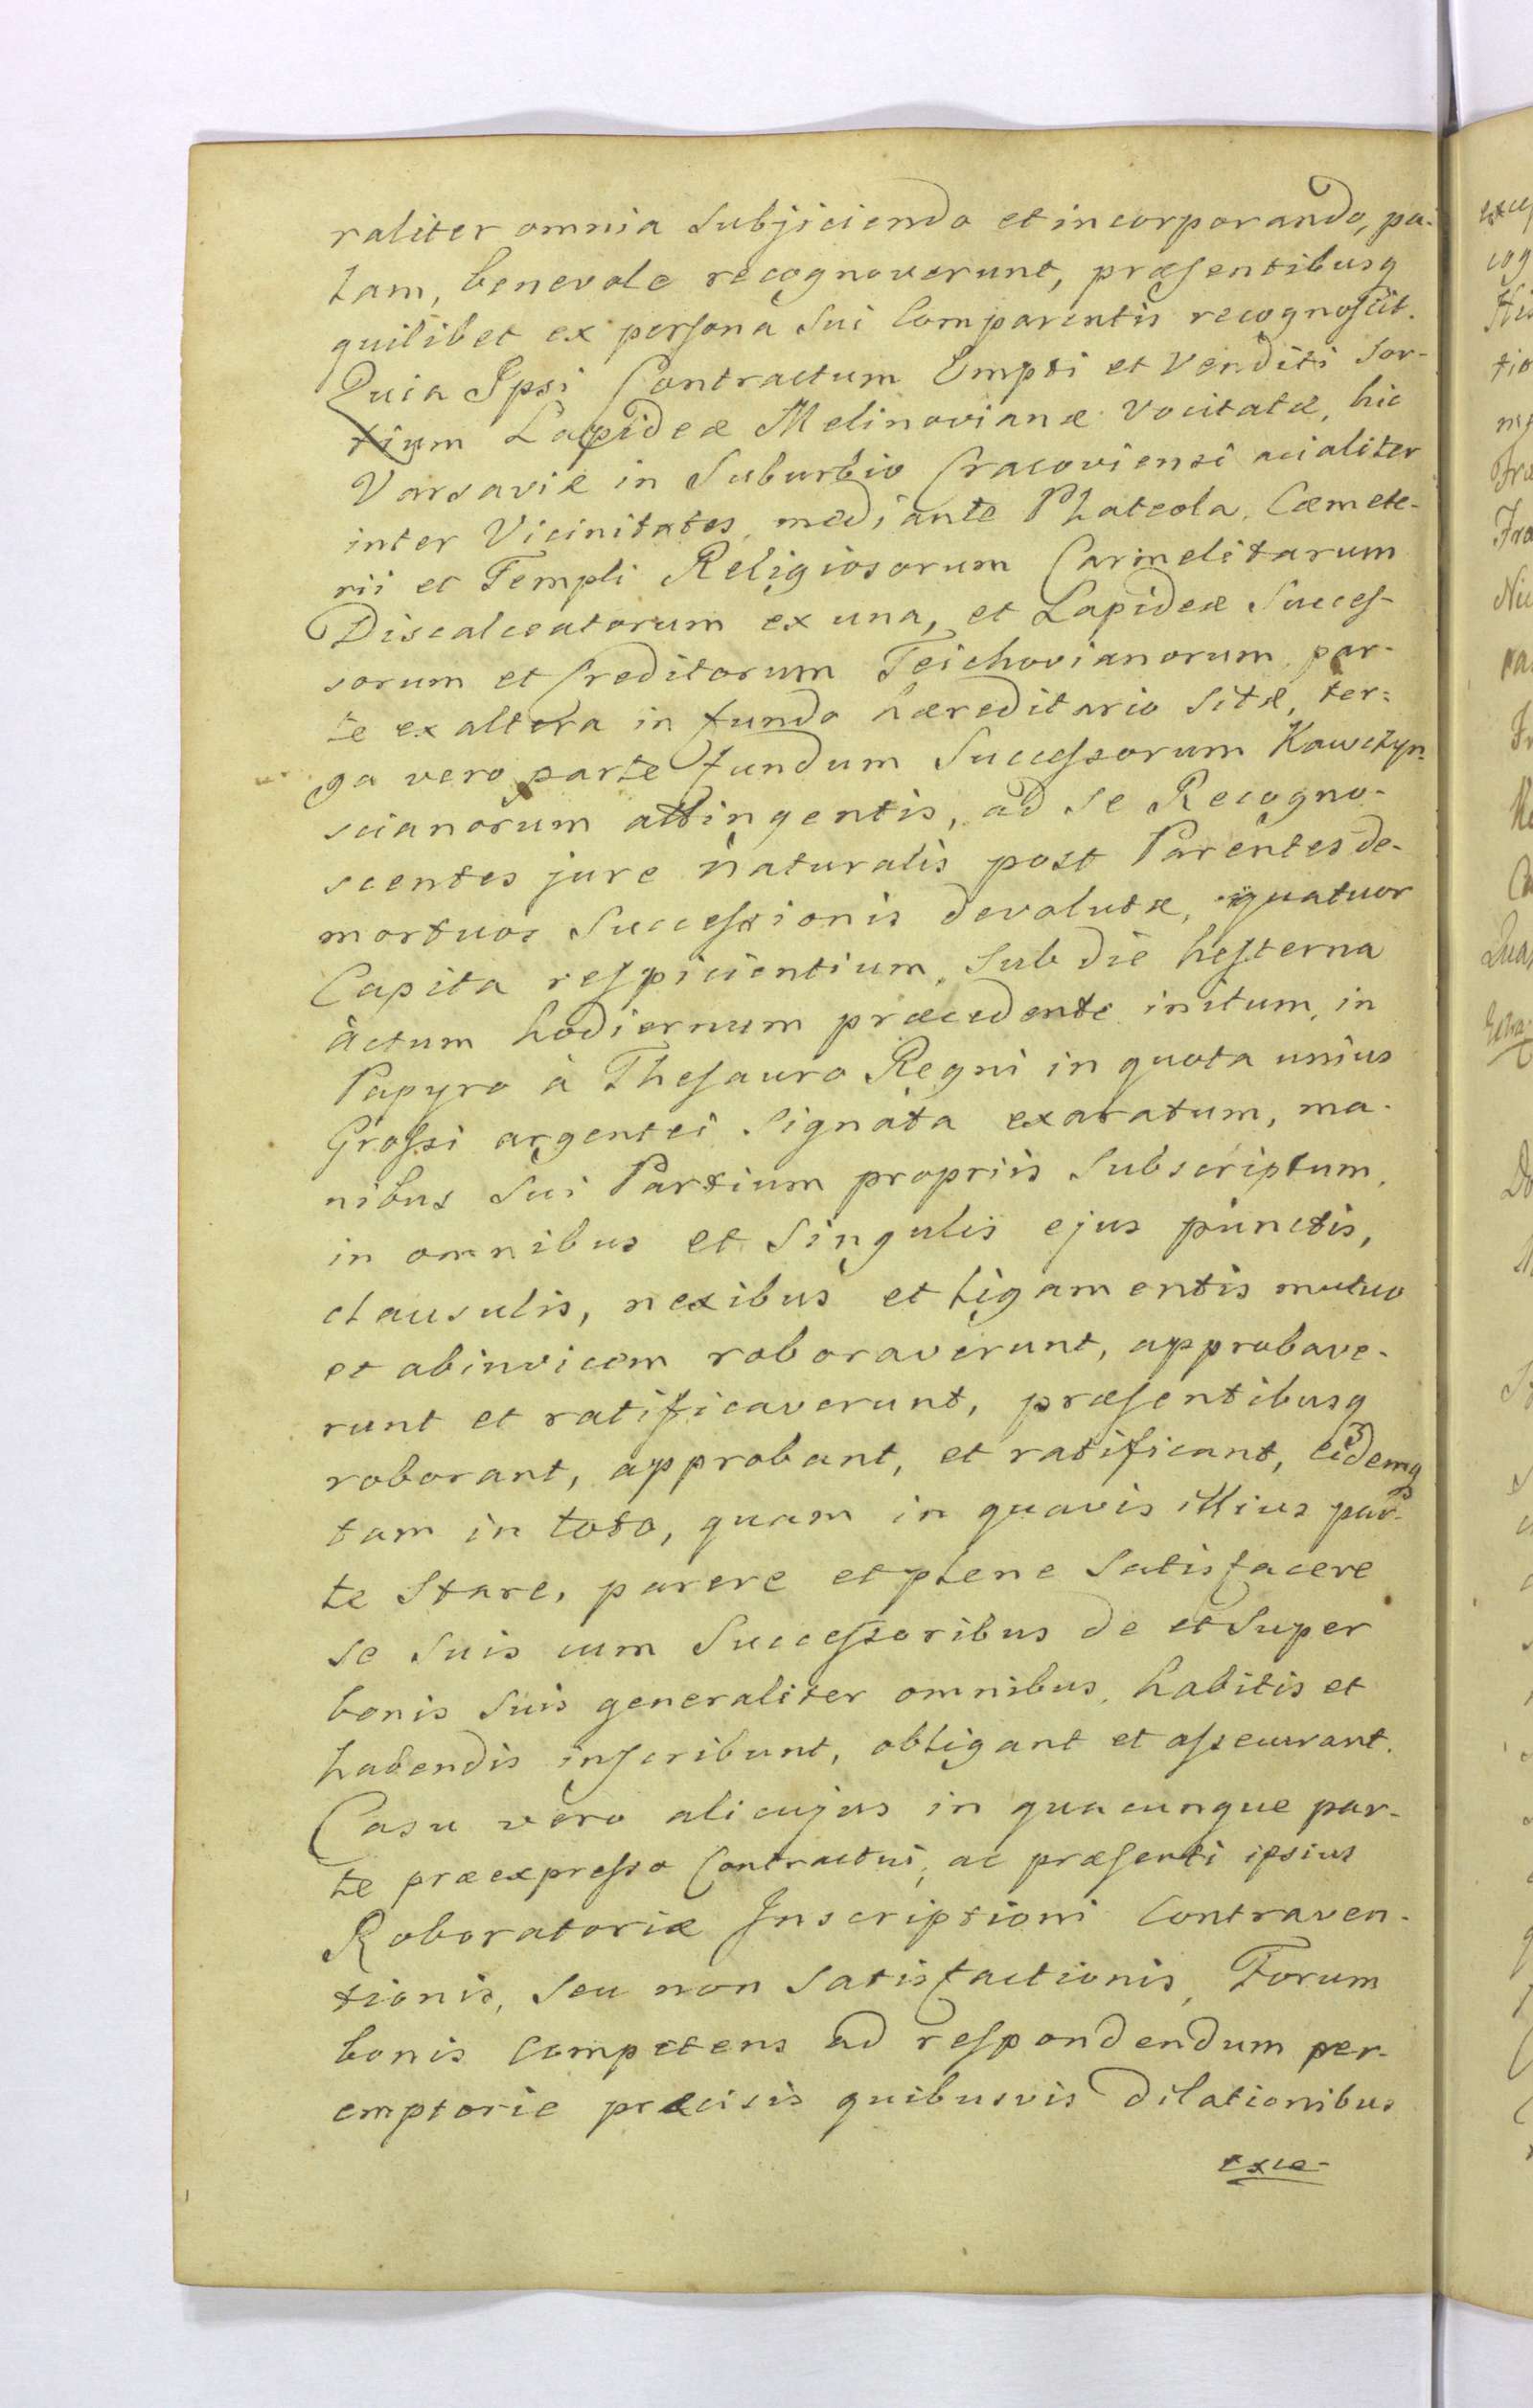 raliter omnia Subjiciendo et incorporando, pa-
lam, benevole recognoverunt, præsentibusq
quilibet ex persona Sui Comparentis recognoscit.
Quia Ipsi Contractum Empti et Venditi Sor-
tium Lapideæ Melinovianæ vocitatæ, hic
Varsaviæ in Suburbio Cracoviensi acialiter
inter Vicinitates, mediante Plateola, Cœmete-
rii et Templi Religiosorum Carmelitarum
Discalceatorum ex una, et Lapideæ Succes-
sorum et Creditorum Teichovianorum, par-
te ex altera in fundo hæreditario Sitæ, ter-
ga vero parte fundum Successorum Kawczyn-
scianorum attingentis, ad se Recogno-
scentes jure naturalis post Parentes de-
mortuos Successionis devolutæ, quatuor
Capita respicientium, Sub die hesterna
àctum hodiernum præcedente initum, in
Papyro à Thesauro Regni in quota unius
Grossi argentei Signata exaratum, ma-
nibus Sui Partium propriis Subscriptum,
in omnibus et Singulis ejus punctis,
clausulis, nexibus et ligamentis mutuo
et abinvicem roboraverunt, approbave-
runt et ratificaverunt, præsentibusq
roborant, approbant, et ratificant, eidemq
tam in toto, quam in quavis illius par-
te Stare, parere et plene Satisfacere
se Suis cum Successoribus de et Super
bonis Suis generaliter omnibus, habitis et
habendis inscribunt, obligant et assecurant.
Casu vero alicujus in quacunque par-
te præexpresso Contractui, ac præsenti ipsius
Roboratoriæ Inscriptioni Contraven-
tionis, Seu non Satisfactionis, Forum
bonis Competens ad respondendum per-
emptorie præcisis quibusvis dilationibus
exce-